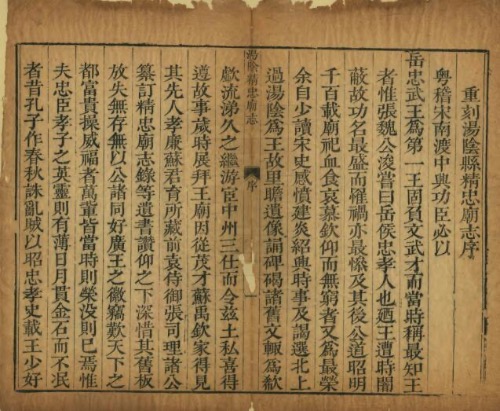 重刻湯陰縣精忠廟志序
粵稽宋南渡中興功臣必以
岳忠武王爲第一王固負文武才而當時稱最知王
者惟張魏公浚嘗曰岳侯忠孝人也廼王遭時闇
蔽故功名最盛而罹禍亦最慘及其後公道昭明
千百載廟祀血食哀慕欽仰而無窮者又爲最榮
余自少讀宋史感憤建炎紹興時事及謁選北上
過湯陰爲王故里瞻遺像詞碑碣諸舊文輒爲欷
湯陰精忠廟志 序 一
歔流涕久之繼游宦中州三仕而令茲土私喜得
遵故事歲時展拜王廟因從茂才蘇禹欽家得見
其先人孝廉蘇君育所藏前袁侍御張司理諸公
纂訂精忠廟志錄等遺書讚仰之下深惜其舊板
放失無存無以公諸同好廣王之徽竊歎天下之
都富貴操威福者萬輩皆當時則榮沒則已焉惟
夫忠臣孝子之英靈則有薄日月貫金石而不泯
者昔孔子作春秋誅亂賊以昭忠孝史載王少好